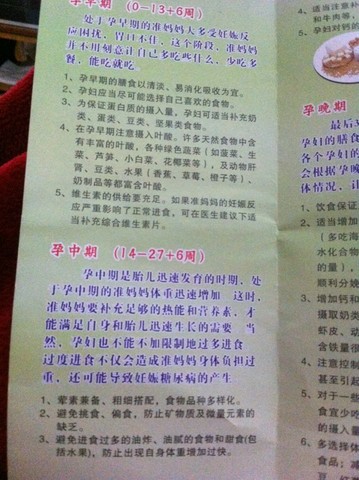 孕早期 (0-13+6周)
处于孕早期的准妈妈大多受妊娠反
应困扰,胃口不佳,这个阶段,准妈妈
并不用刻意让自己多吃些什么,少吃多
餐,能吃就吃
1、孕早期的膳食以清淡、易消化吸收为宜。
2、孕妇应当尽可能选择自己喜欢的食物。
3、为保证蛋白质的摄入量,孕妇可适当补充奶
类、蛋类、豆类、坚果类食物。
4、在孕早期注意摄入叶酸。许多天然食物中含
有丰富的叶酸,各种绿色蔬菜(如菠菜、生
菜、芦笋、小白菜、花椰菜等),及动物肝
肾、豆类、水果(香蕉、草莓、橙子等)、
奶制品等都富含叶酸。
5、维生素的供给要充足。如果准妈妈的妊娠反
应严重影响了正常进食,可在医生建议下适
当补充综合维生素片。
孕中期 (14-27+6周)
孕中期是胎儿迅速发育的时期,处
于孕中期的准妈妈体重迅速增加 这时,
准妈妈要补充足够的热能和营养素,才
能满足自身和胎儿迅速生长的需要 当
然,孕妇也不能不加限制地过多进食
过度进食不仅会造成准妈妈身体负担过
重,还可能导致妊娠糖尿病的产生
1、荤素兼备、粗细搭配,食物品种多样化。
2、避免挑食、偏食,防止矿物质及微量元素的
缺乏。
3、避免进食过多的油炸、油腻的食物和甜食(包
括水果),防止出现自身体重增加过快。
4、适当注意补
和牛肉等,
5、孕妇对钙的
孕晚期
最后3
孕妇的膳食
各个孕妇的
会根据孕晚
体情况,调
1、饮食保证
2、适当增加
(多吃海
水化合物
的热量)
顺利分娩
3、增加钙和
摄取奶类
虾皮、动
含铁量很
4、注意控制
甚至引起
5、对于一些
食宜少吃
的食物
6、多选择体
食品;减